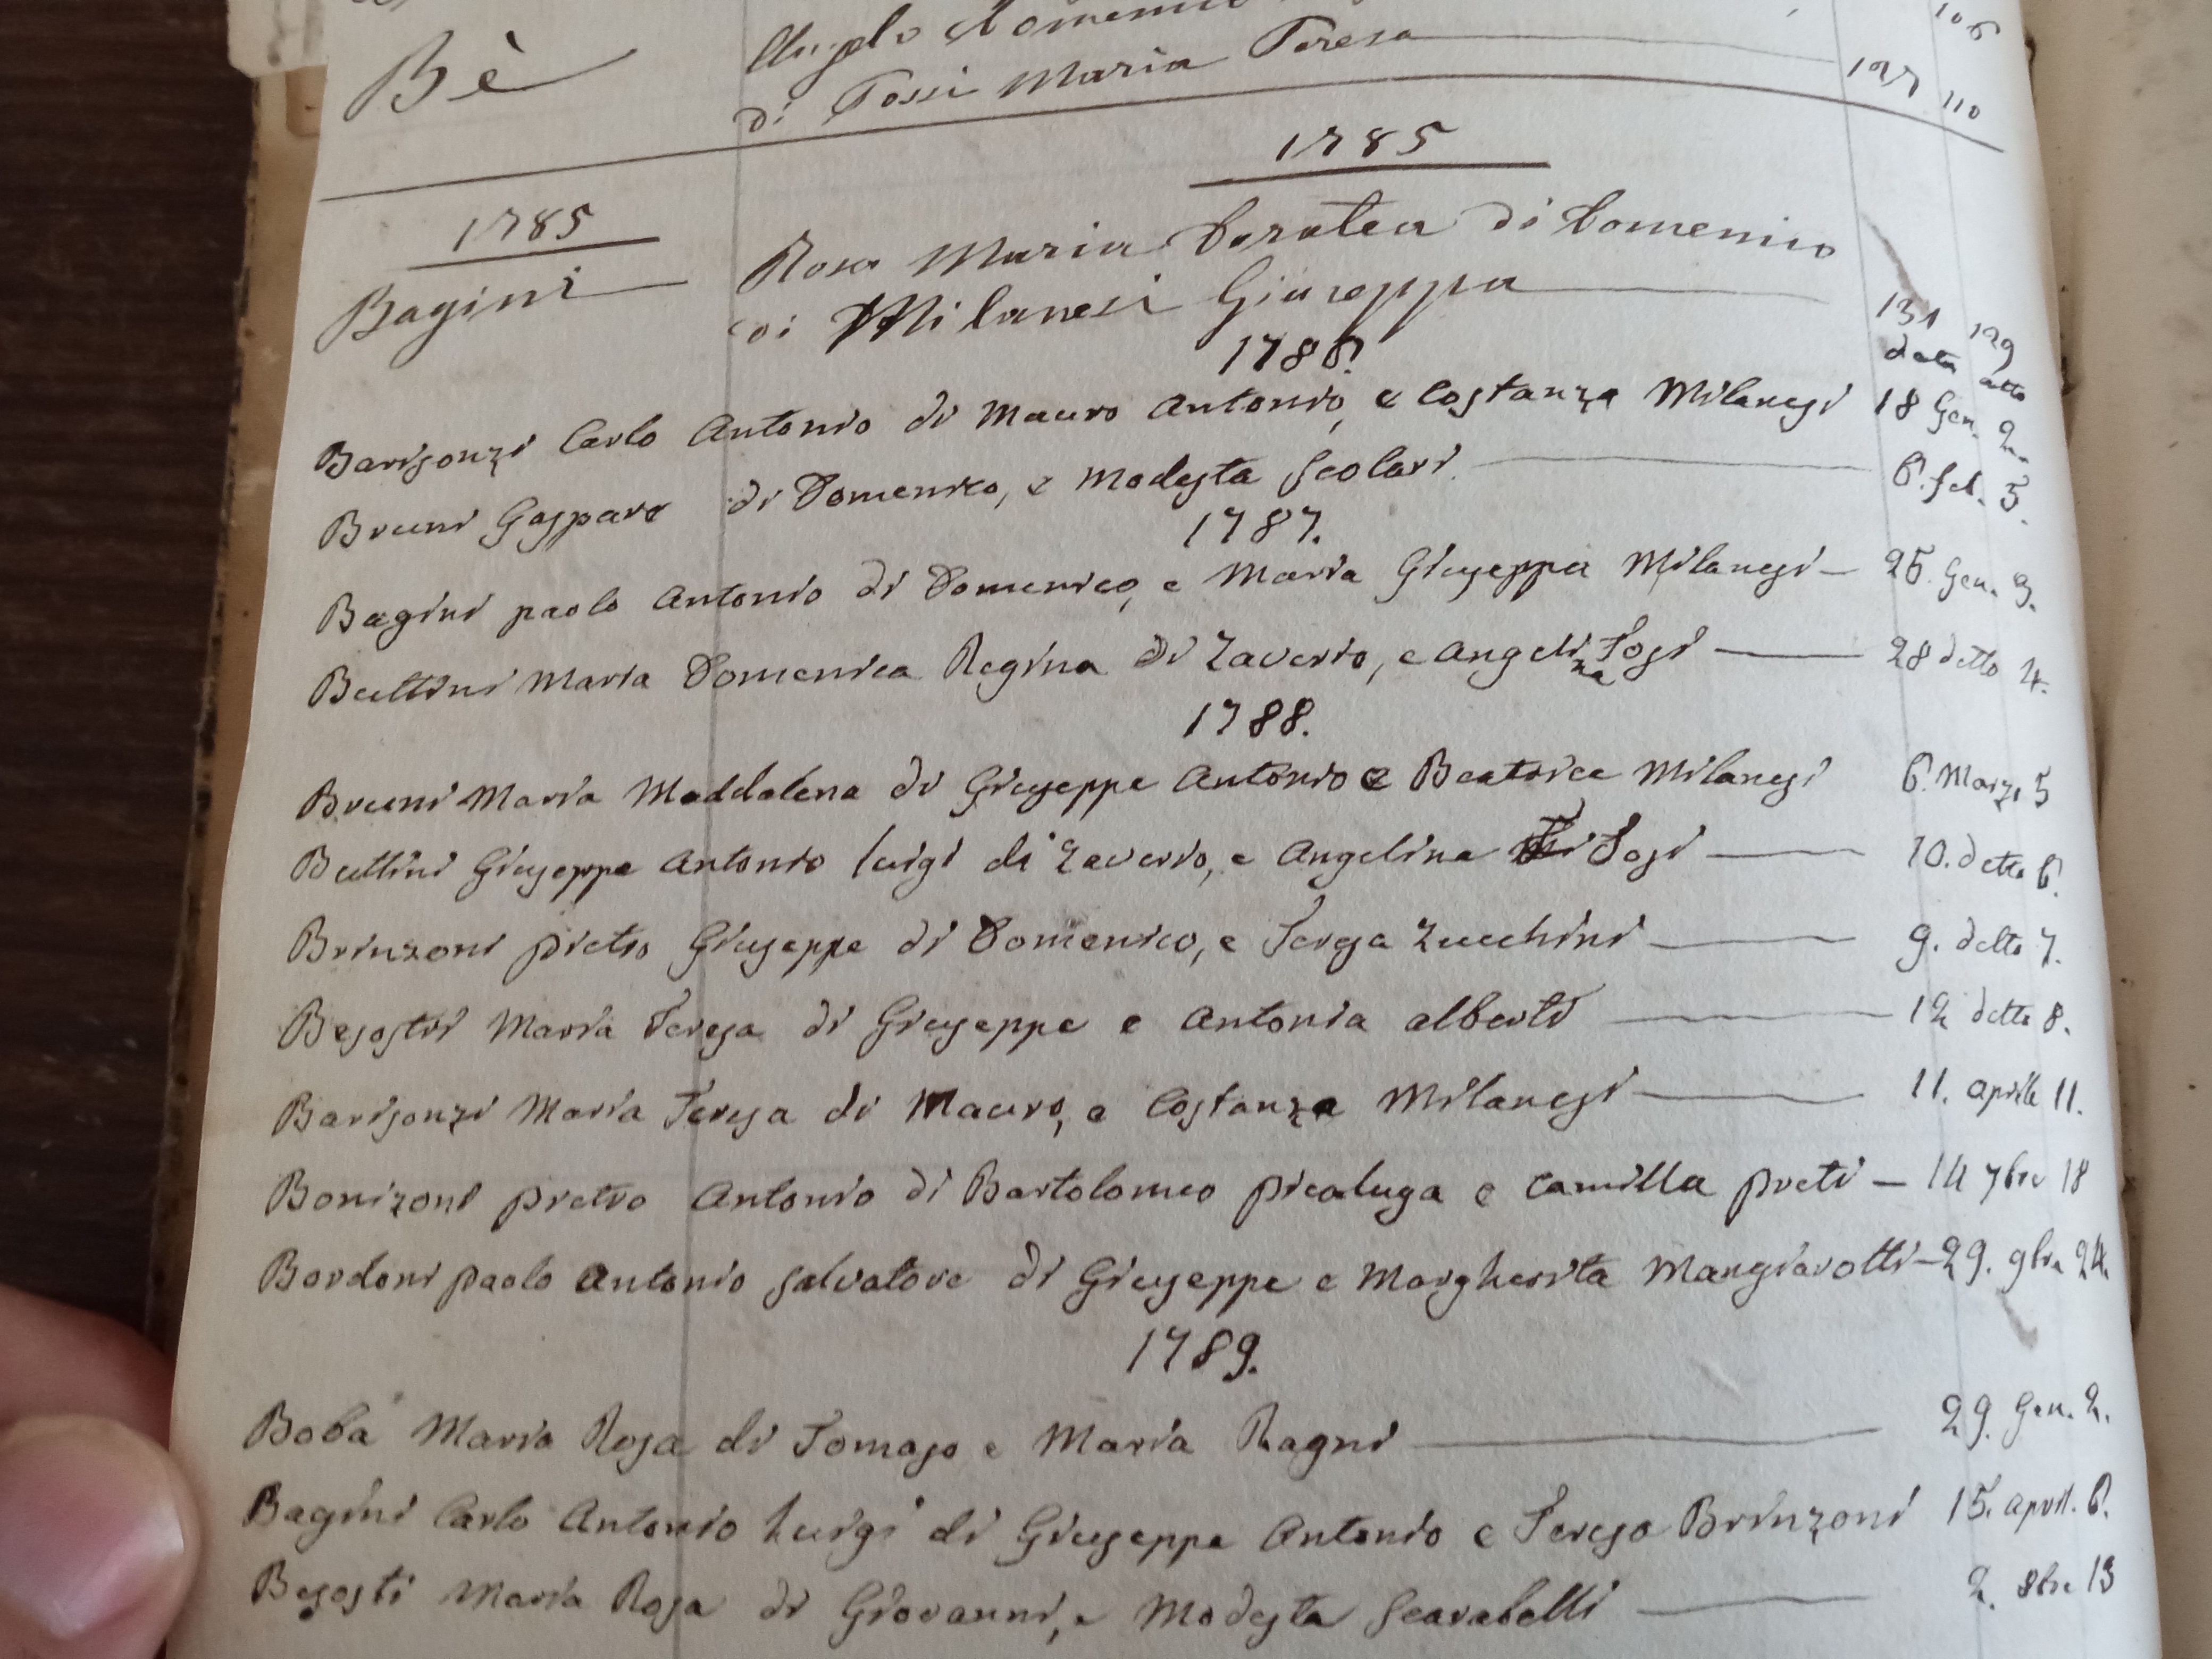 106
Bè Angelo Domenico
di Tossi Maria Teresa 127 110
1785
1785
Bagini Rosa Maria Dorotea di Domenico
di Milanesi Giuseppa 131 129
1786. data atto
Barisonzi Carlo Antonio di Mauro Antonio, e Costanza Milanesi 18 Gen. 2.
Bruni Gaspare di Domenico, e Modesta Scolari 6. feb. 5.
1787.
Bagini paolo Antonio di Domenico, e Maria Giuseppa Milanesi 25. Gen. 3.
Buttini Maria Domenica Regina di Zaverio, e Angelina Tosi 28 detto 4.
1788.
Bruni Maria Maddalena di Giuseppe Antonio e Beatrice Milanesi 6. Marzo 5
Buttini Giuseppe Antonio luigi di Zaverio, e Angelina Tosi 10. detto 6.
Brinzoni pietro Giuseppe di Domenico, e Teresa Zucchini 9. detto 7.
Besostri Maria Teresa di Giuseppe e Antonia alberti 12 detto 8.
Barisonzi Maria Teresa di Mauro, e Costanza Milanesi 11. aprile 11.
Bonizoni pietro Antonio di Bartolomeo picaluga e Camilla preti 14 7bre 18
Bordoni paolo Antonio Salvatore di Giuseppe e Margherita Mangiarotti 29. 9bre 24.
1789.
Boba Maria Rosa di Tomaso e Maria Ragni 29. Gen. 2.
Bagini Carlo Antonio Luigi di Giuseppe Antonio e Teresa Brinzoni 15. april. 6.
Besosti Maria Rosa di Giovanni, e Modesta Scarabelli 2. 8bre 13